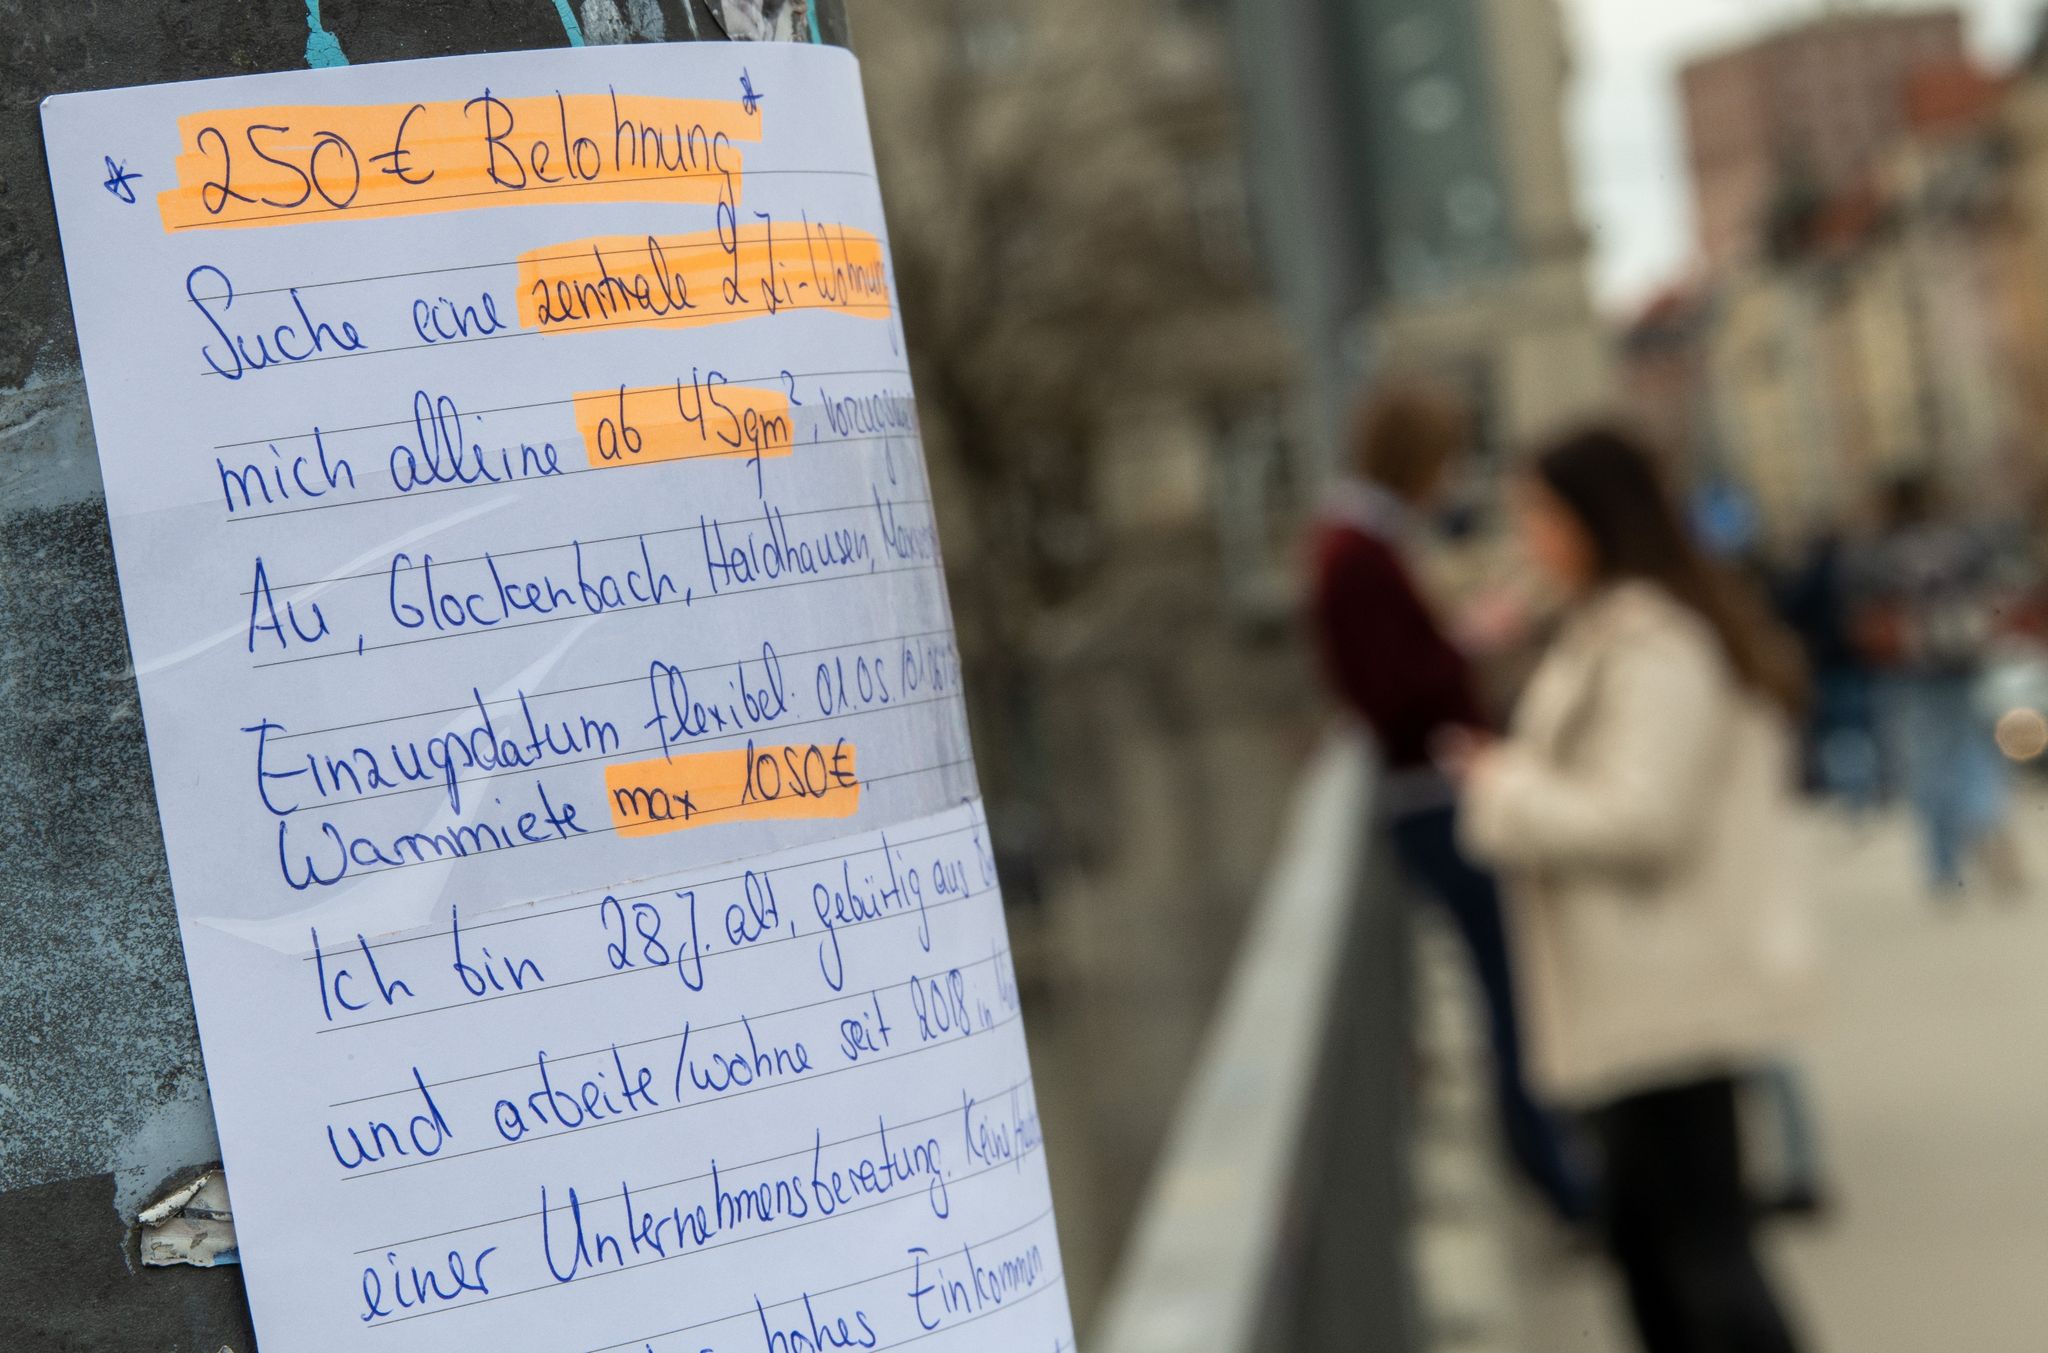 * 250€ Belohnung *
Suche eine zentrale 2 Zi-Wohnung
mich alleine ab 45qm²,
Au, Glockenbach, Haidhausen,
Einzugsdatum flexibel: 01.05./01.06
Warmmiete max 1050€.
Ich bin 28 J. alt, gebürtig aus
und arbeite/wohne seit 2018 in
einer Unternehmensberatung. Keine
hohes Einkommen